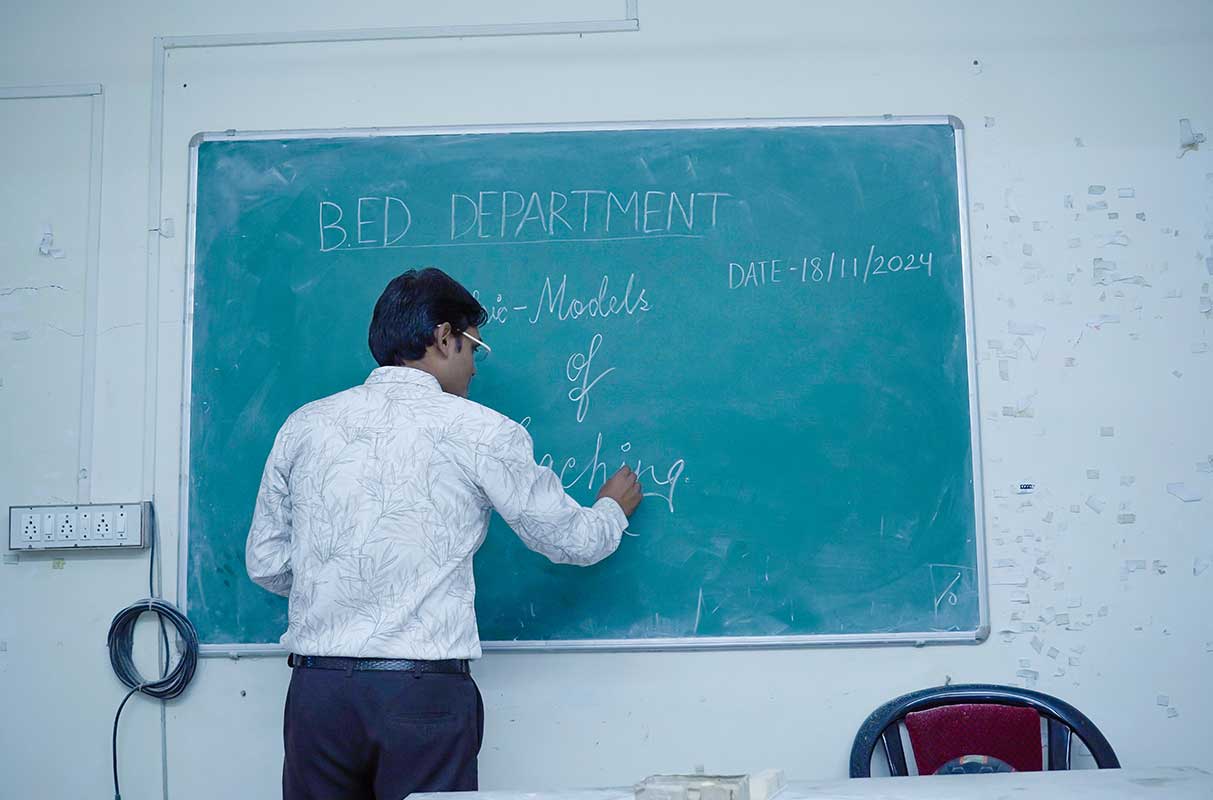 B.ED DEPARTMENT
DATE-18/11/2024
-Models
of